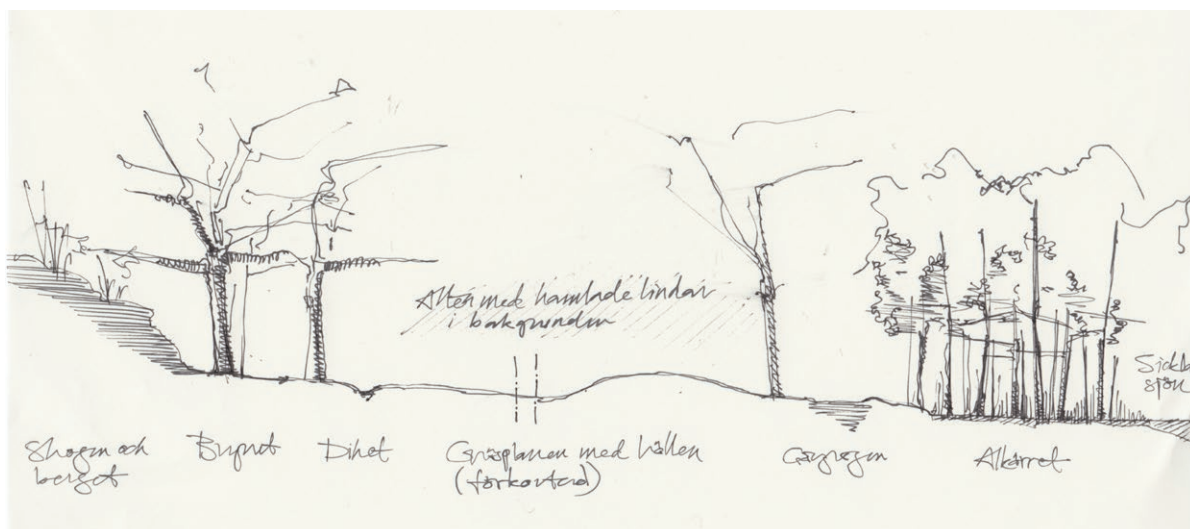 Allén med hamlade lindar
i bakgrunden
Sickla
sjön
Skogen och
berget
Brynet
Diket
Gräsplanen med hällen
(förkortad)
Gångvägen
Alkärret